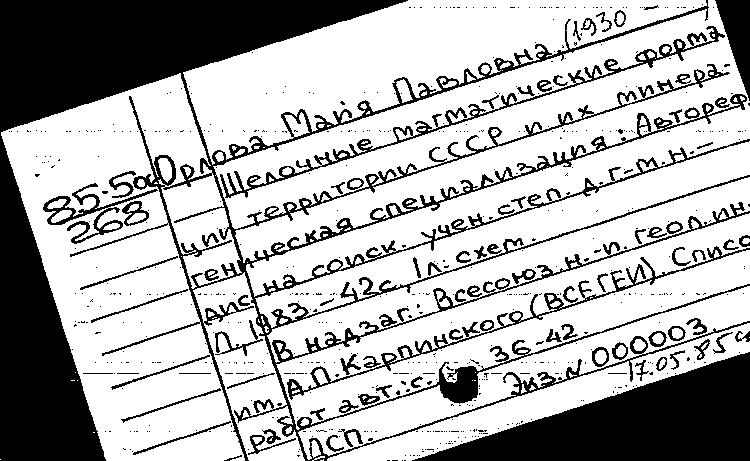 85-5дсп
268
Орлова, Майя Павловна, (1930 - )
Щелочные магматические форма
ции территории СССР и их минера-
геническая специализация: Автореф
дис на соиск. учен. степ. д.г-м.н.-
Л, 1983.-42с, 1л. схем.
В надзаг.: Всесоюз. н.-и. геол. ин.
им. А.П. Карпинского (ВСЕГЕИ). Списо
работ авт.: с. 36-42.
ДСП. Экз. N 000003.
17.05.85